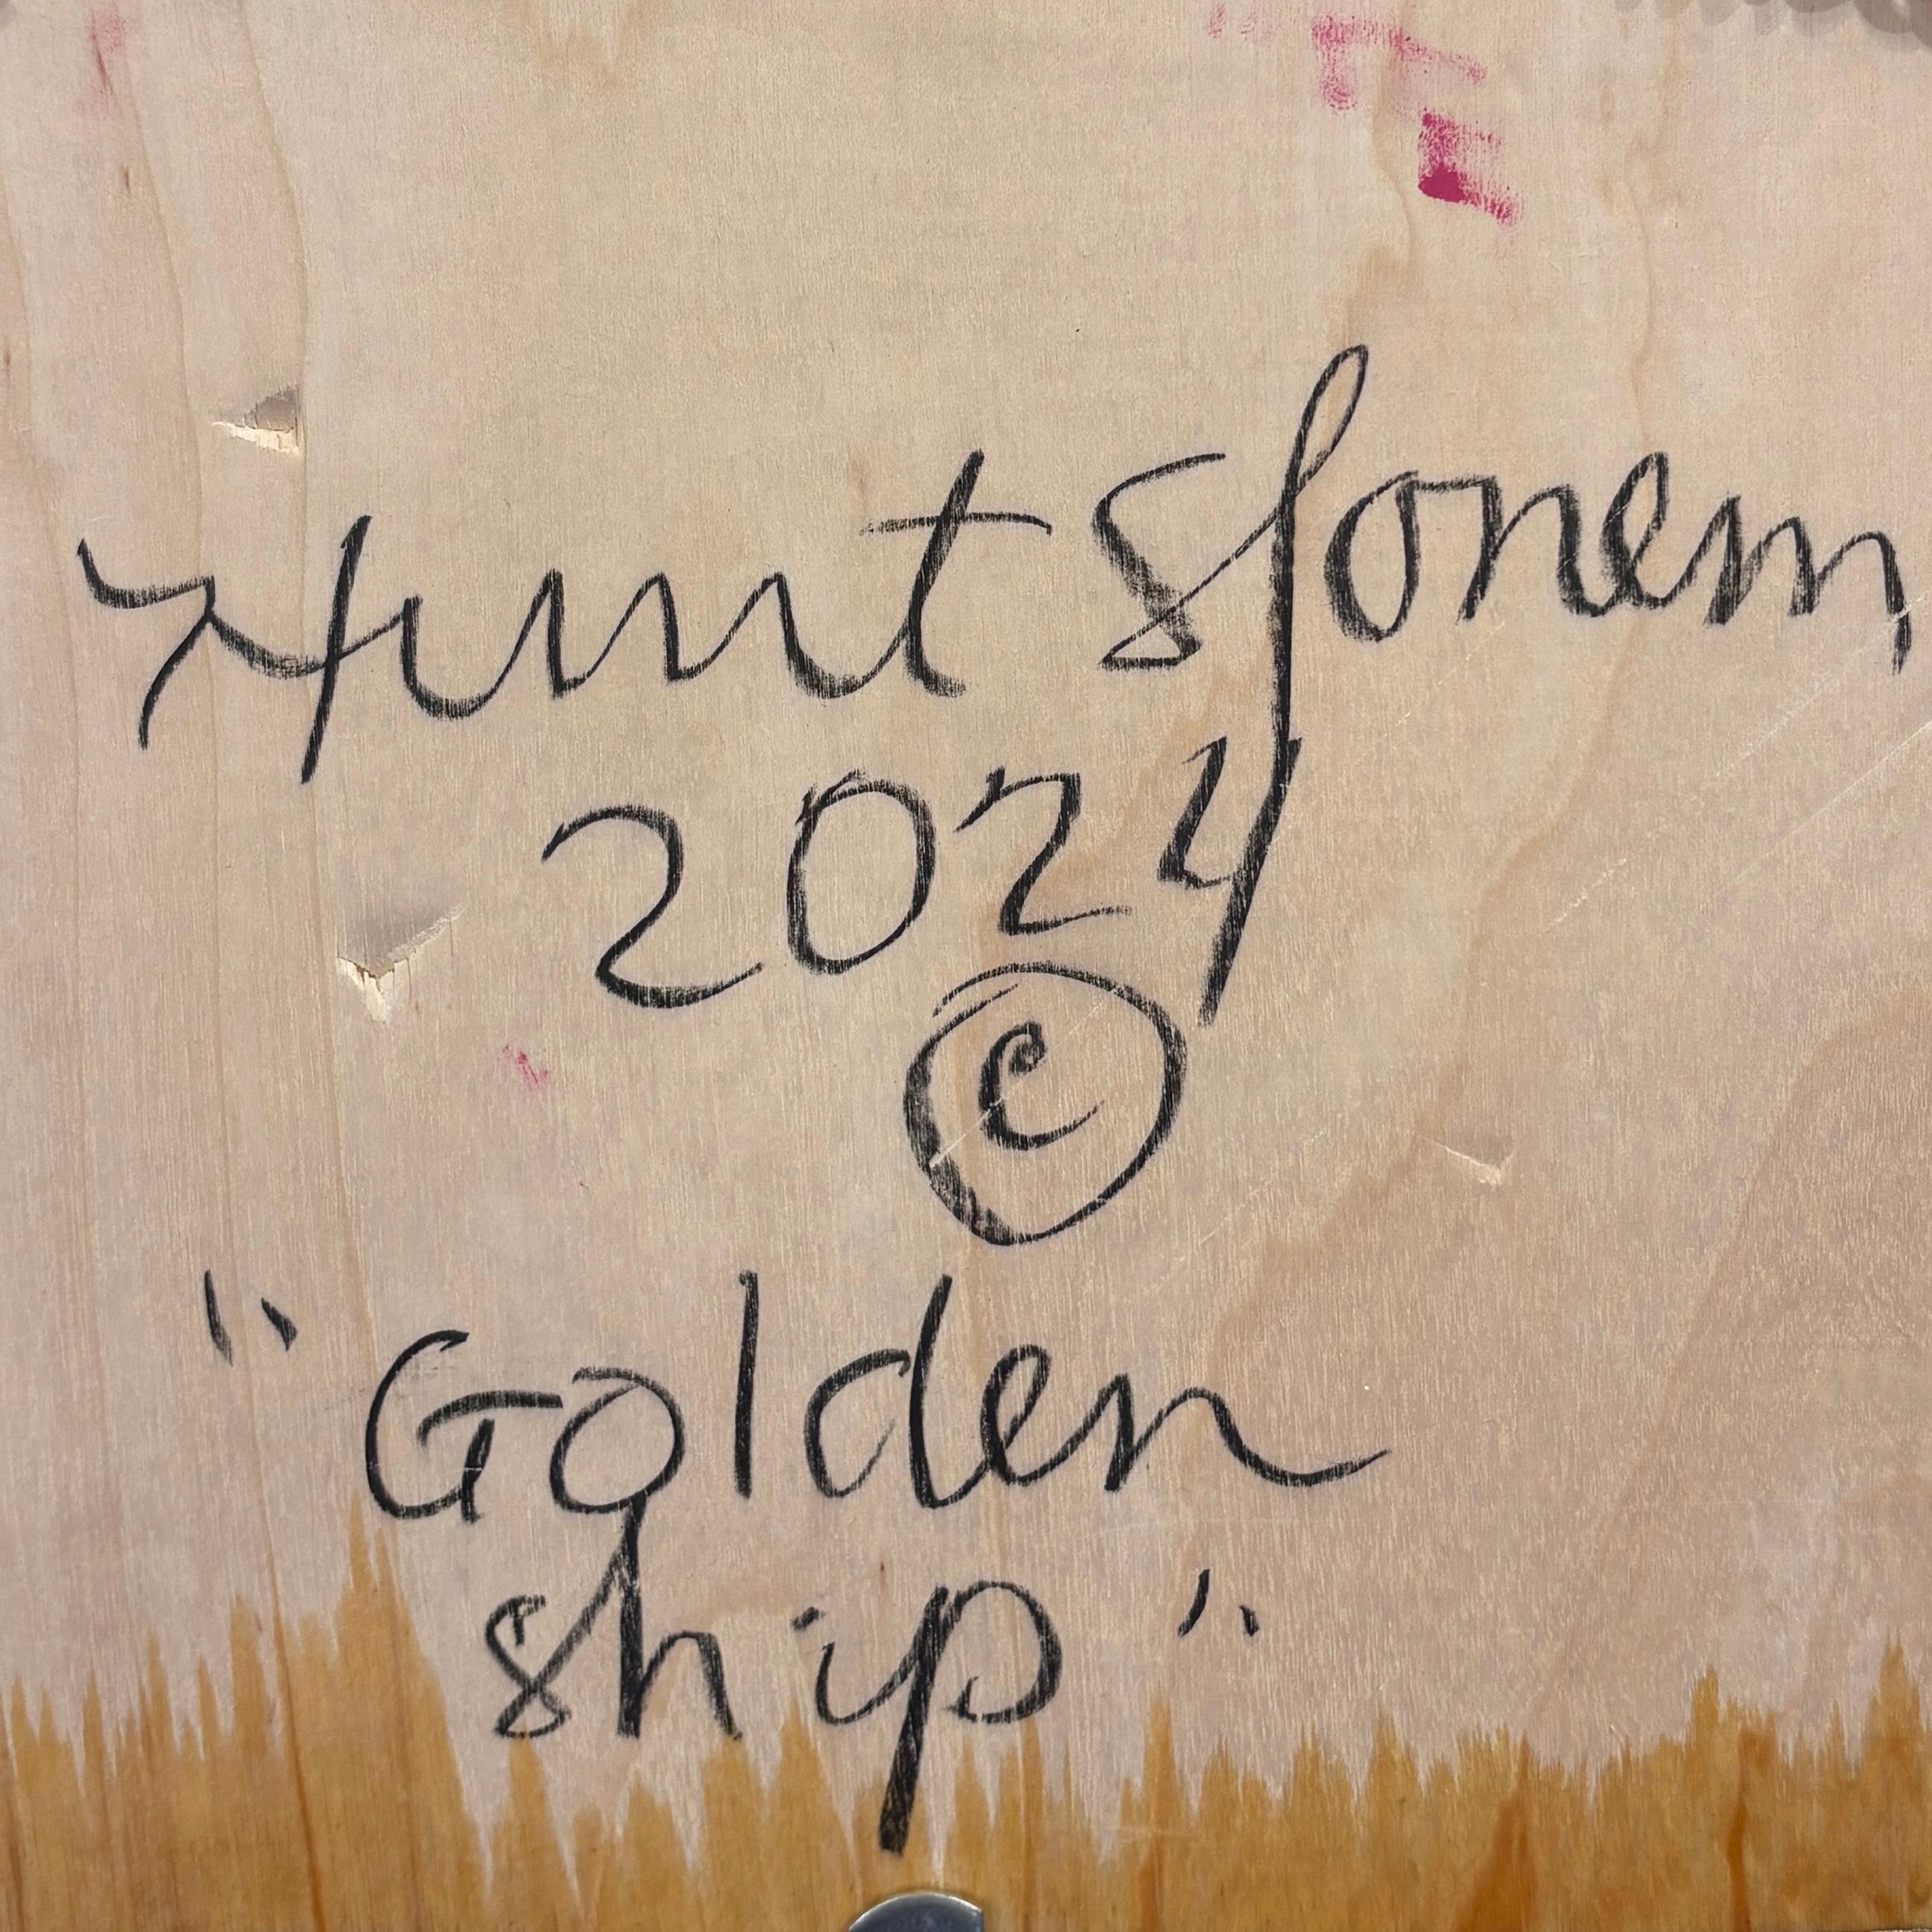 Hunt Slonem
2024
©
"Golden
Ship"